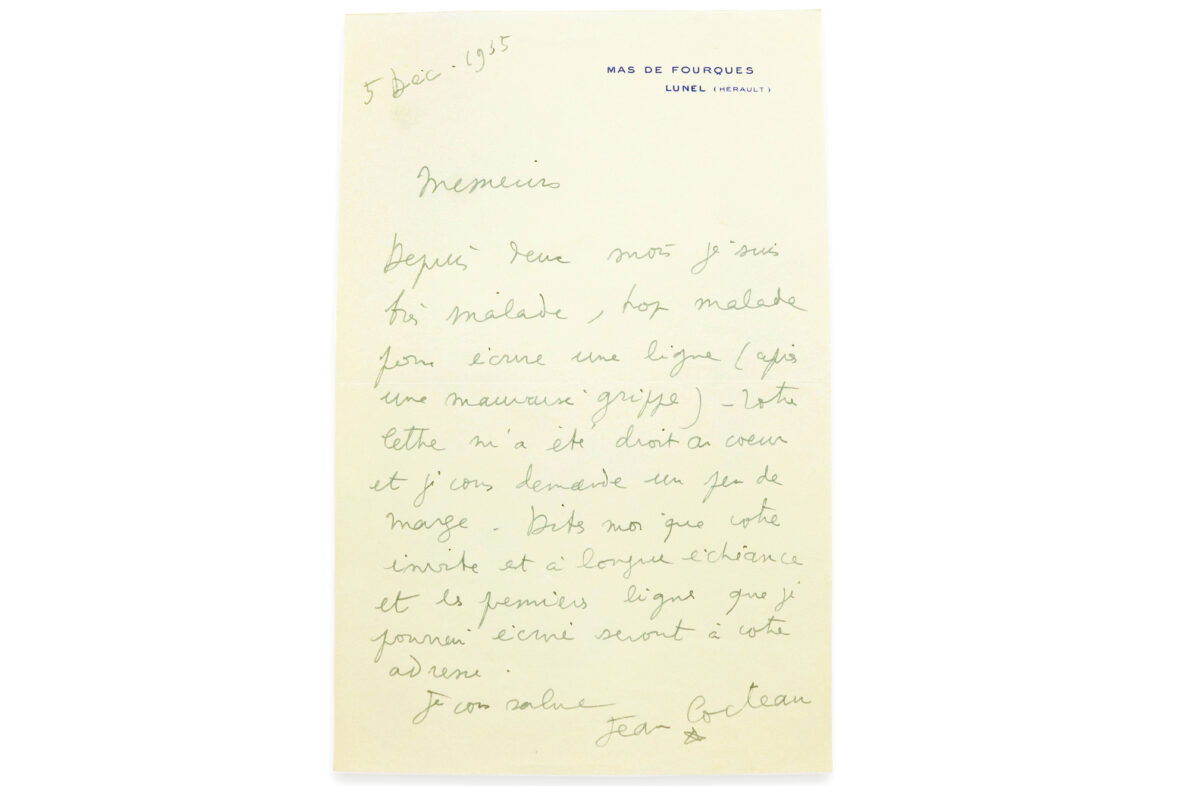 5 Déc. 1935
MAS DE FOURQUES
LUNEL (HERAULT)
Messieurs
Depuis deux mois je suis
très malade, trop malade
pour écrire une ligne (après
une mauvaise grippe) - Votre
lettre m'a été droit au coeur
et je vous demande un peu de
marge. Dites moi que votre
invite est à longue échéance
et les premières lignes que je
pourrai écrire seront à votre
adresse.
Je vous salue
Jean Cocteau